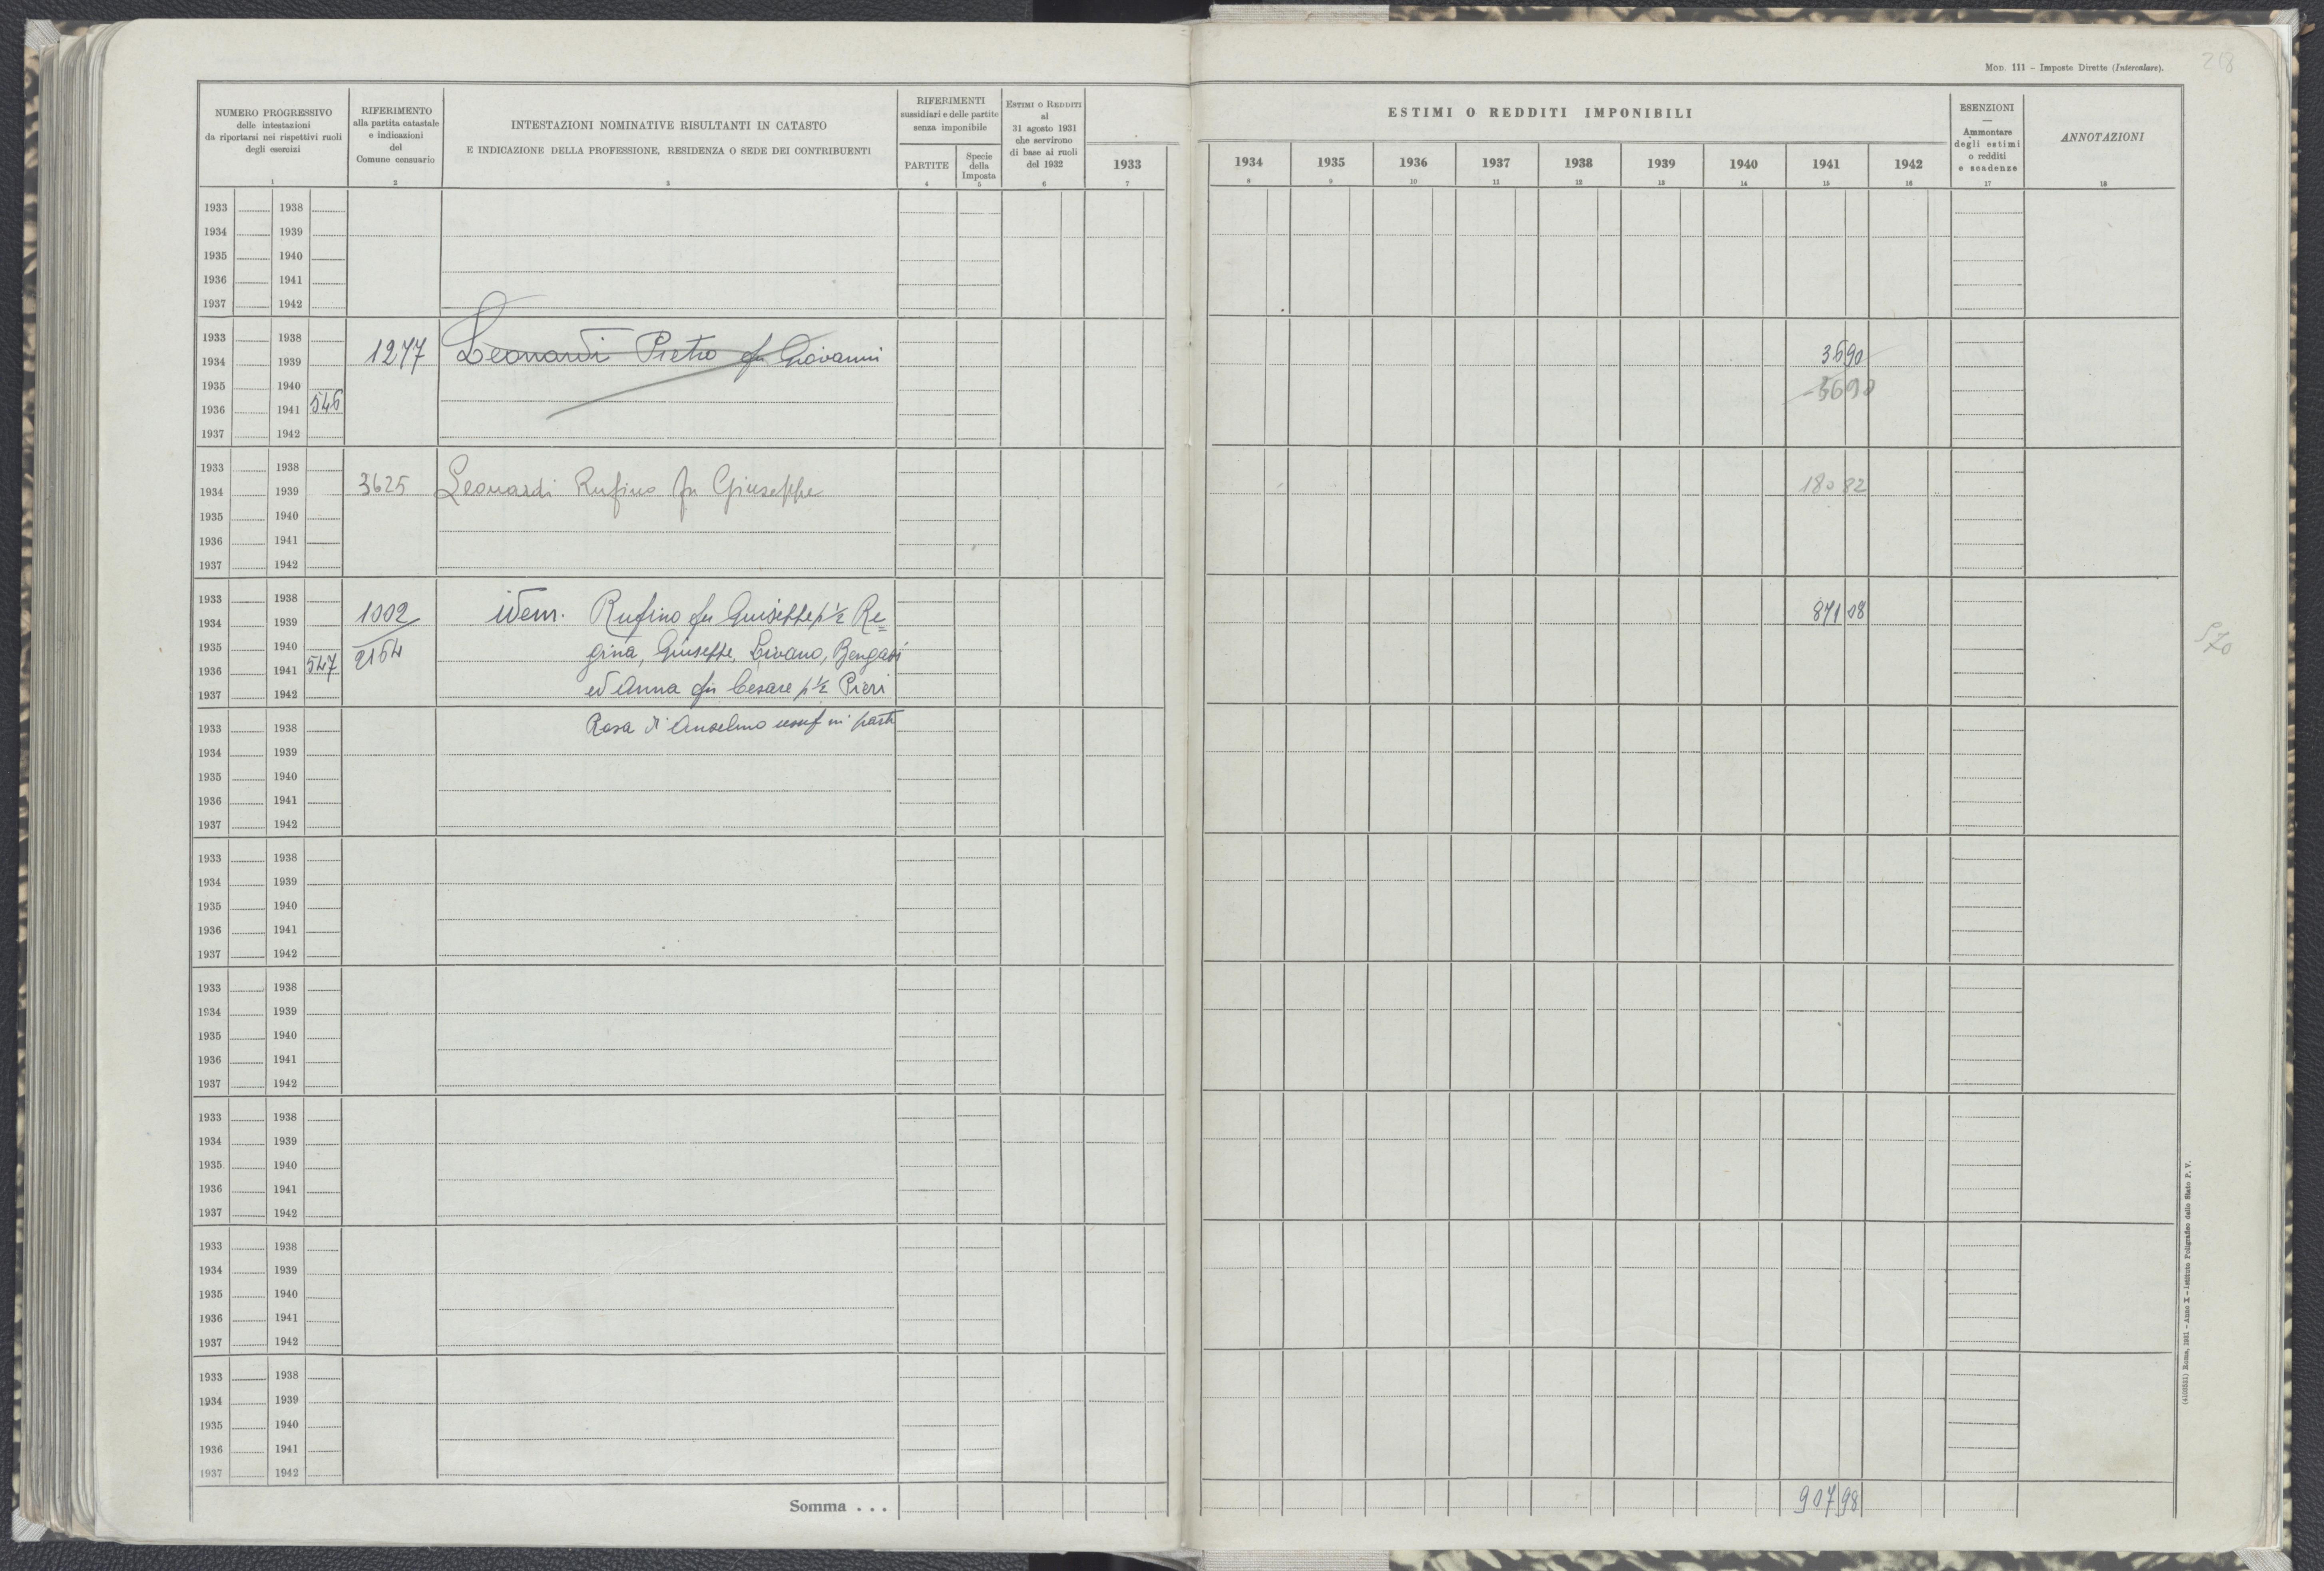 218
MOD. 111 - Imposte Dirette (Intercalare).
NUMERO PROGRESSIVO
delle intestazioni
da riportarsi nei rispettivi ruoli
degli esercizi
1
RIFERIMENTO
alla partita catastale
e indicazioni
del
Comune censuario
2
INTESTAZIONI NOMINATIVE RISULTANTI IN CATASTO
E INDICAZIONE DELLA PROFESSIONE, RESIDENZA O SEDE DEI CONTRIBUENTI
3
RIFERIMENTI
sussidiari e delle partite
senza imponibile
PARTITE
4
Specie
della
Imposta
5
ESTIMI O REDDITI
al
31 agosto 1931
che servirono
di base ai ruoli
del 1932
6
1933
7
ESTIMI O REDDITI IMPONIBILI
1934 1935 1936 1937 1938 1939 1940 1941 1942
8 9 10 11 12 13 14 15 16
ESENZIONI
—
Ammontare
degli estimi
o redditi
e scadenze
17
ANNOTAZIONI
18
1933 1938
1934 1939
1935 1940
1936 1941
1937 1942
1933 1938
1934 1939 1277 Leonardi Pietro fu Giovanni 36 90
1935 1940 -36 90
1936 1941 546
1937 1942
1933 1938
1934 1939 3625 Leonardi Rufino fu Giuseppe 180 82
1935 1940
1936 1941
1937 1942
1933 1938
1934 1939 1002 idem. Rufino fu Giuseppe p 1/2 Re= 871 08
1935 1940 2164 gina, Giuseppe, Livano, Bengasi
1936 1941 547
1937 1942 ed Anna fu Cesare p 1/2 Pieri
1933 1938 Rosa di Anselmo usuf in parte
1934 1939
1935 1940
1936 1941
1937 1942
1933 1938
1934 1939
1935 1940
1936 1941
1937 1942
1933 1938
1934 1939
1935 1940
1936 1941
1937 1942
1933 1938
1934 1939
1935 1940
1936 1941
1937 1942
1933 1938
1934 1939
1935 1940
1936 1941
1937 1942
1933 1938
1934 1939
1935 1940
1936 1941
1937 1942
Somma . . . 907 98
Roma, 1931 - Anno X - Istituto Poligrafico dello Stato P. V.